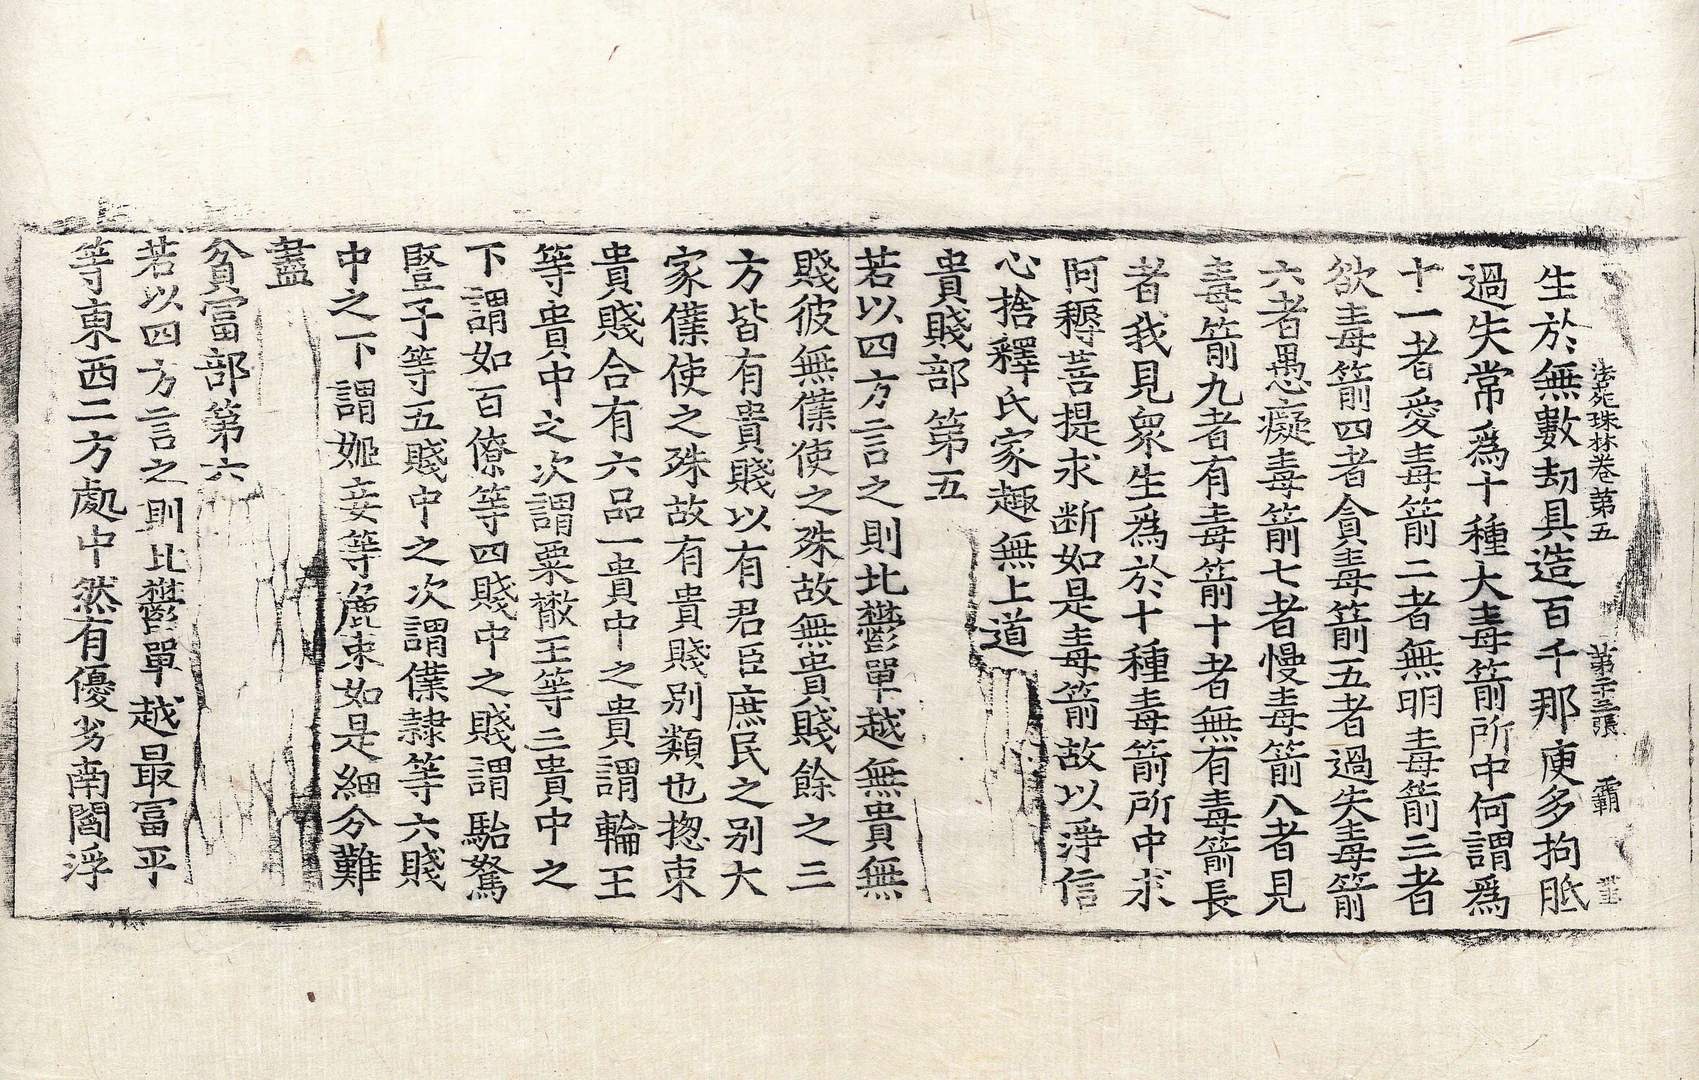 法苑珠林卷第五　第二十三張　霸
生於無數劫具造百千那庾多拘胝
過失常爲十種大毒箭所中何謂爲
十一者愛毒箭二者無明毒箭三者
欲毒箭四者貪毒箭五者過失毒箭
六者愚癡毒箭七者慢毒箭八者見
毒箭九者有毒箭十者無有毒箭長
者我見衆生爲於十種毒箭所中求
阿耨菩提求断如是毒箭故以淨信
心捨釋氏家趣無上道
貴賤部第五
若以四方言之則北鬱單越無貴無
賤彼無僕使之殊故無貴賤餘之三
方皆有貴賤以有君臣庶民之别大
家僕使之殊故有貴賤别類也揔束
貴賤合有六品一貴中之貴謂輪王
等二貴中之次謂粟散王等三貴中之
下謂如百僚等四賤中之賤謂駘駑
竪子等五賤中之次謂僕隷等六賤
中之下謂姬妾等麁束如是細分難
盡
貧富部第六
若以四方言之則北鬱單越最富平
等東西二方處中然有優劣南閻浮